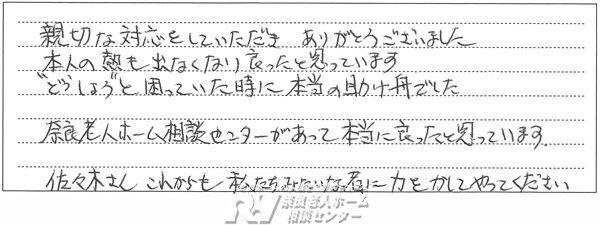 親切な対応をしていただき ありがとうございました
本人の熱も出なくなり良ったと思っています
"どうしよう"と困っていた時に本当の助け舟でした
奈良老人ホーム相談センターがあって本当に良ったと思っています.
佐々木さん これからも 私たちみたいな者に力をかしてやってください
奈良老人ホーム
相談センター